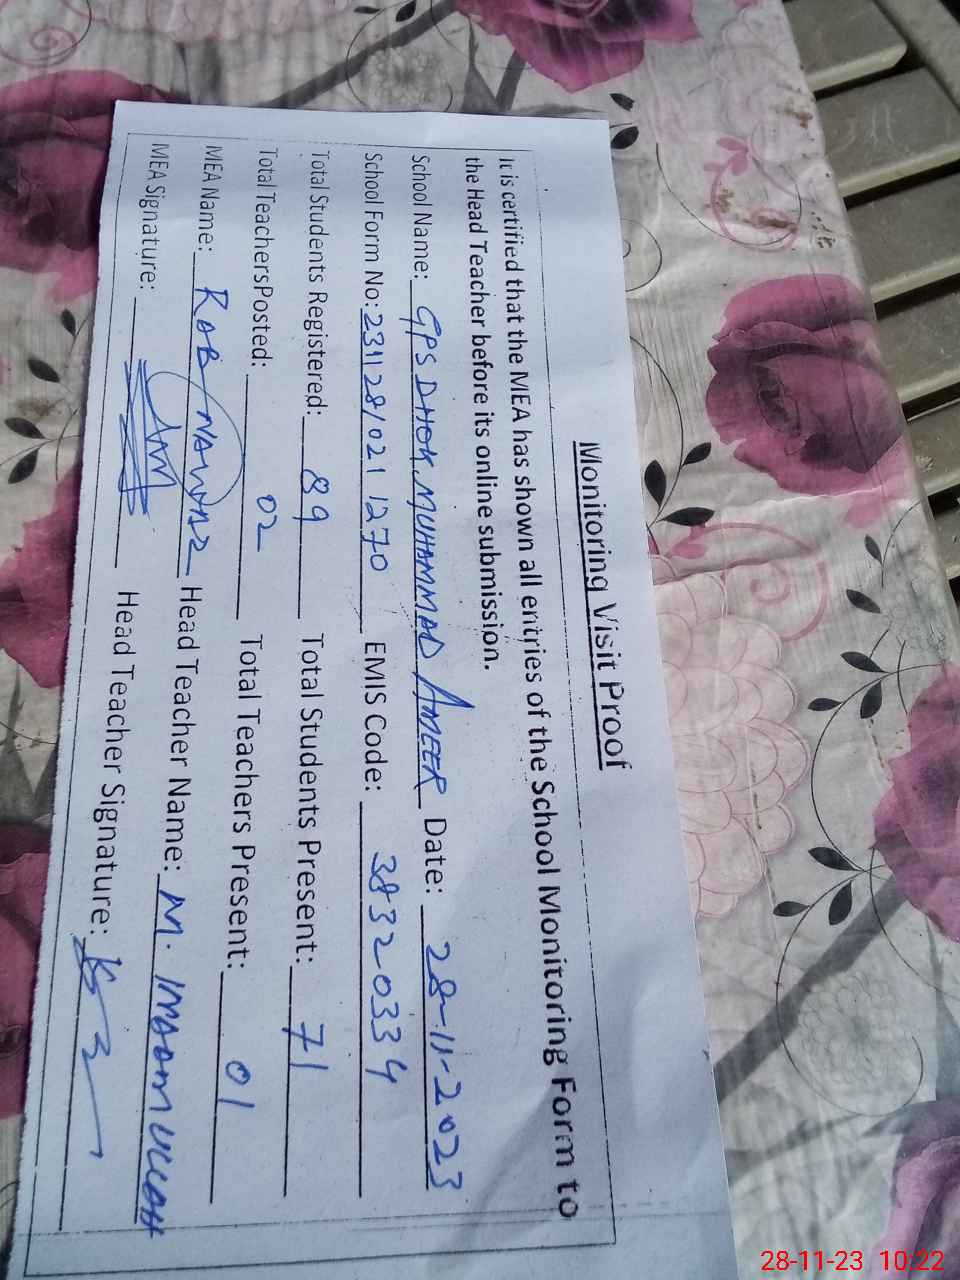 Monitoring Visit Proof
It is certified that the MEA has shown all entries of the School Monitoring Form to
the Head Teacher before its online submission.
School Name: GPS DHOK MUHAMMAD AMEER Date: 28-11-2023
School Form No: 231128/021 1270 EMIS Code: 38320334
Total Students Registered: 89 Total Students Present: 71
Total TeachersPosted: 02 Total Teachers Present: 01
MEA Name: RAB NAWAZ Head Teacher Name: M. INAAMULLAH
MEA Signature: Head Teacher Signature:
28-11-23 10:22